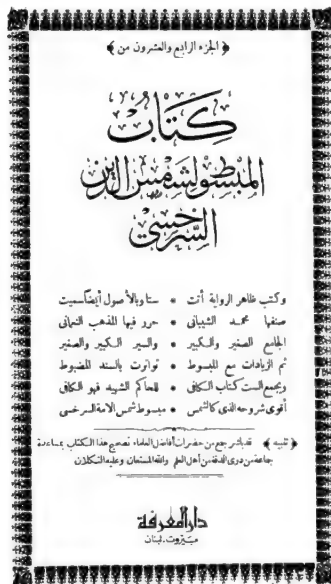 ﴿ الجزء الرابع والعشرون من ﴾
كتاب
المبسوط لشمس الدين
السرخسي
وكتب ظاهر الرواية أتت * ستا وبالأصول أيضا سميت
صنفها محمد الشيباني * حرر فيها المذهب النعماني
الجامع الصغير والكبير * والسير الكبير والصغير
ثم الزيادات مع المبسوط * تواترت بالسند المضبوط
ويجمع الست كتاب الكافي * للحاكم الشهيد فهو الكافي
أقوى شروحه الذي كالشمس * مبسوط شمس الأمة السرخسي
﴿ تنبيه ﴾ قد باشر جمع من حضرات أفاضل العلماء تصحيح هذا الكتاب بمساعدة
جماعة من ذوي الدقة من أهل العلم والله المستعان وعليه التكلان
دار المعرفة
بيروت . لبنان